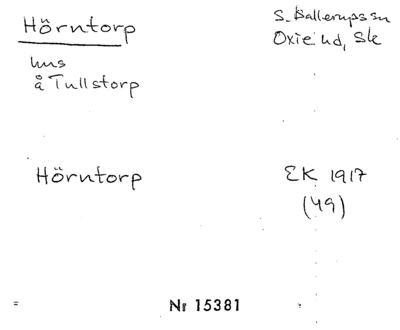 Hörntorp
S. Ballerups sn
Oxie hd, Sk
hus
å Tullstorp
Hörntorp
EK 1917
(49)
Nr 15381